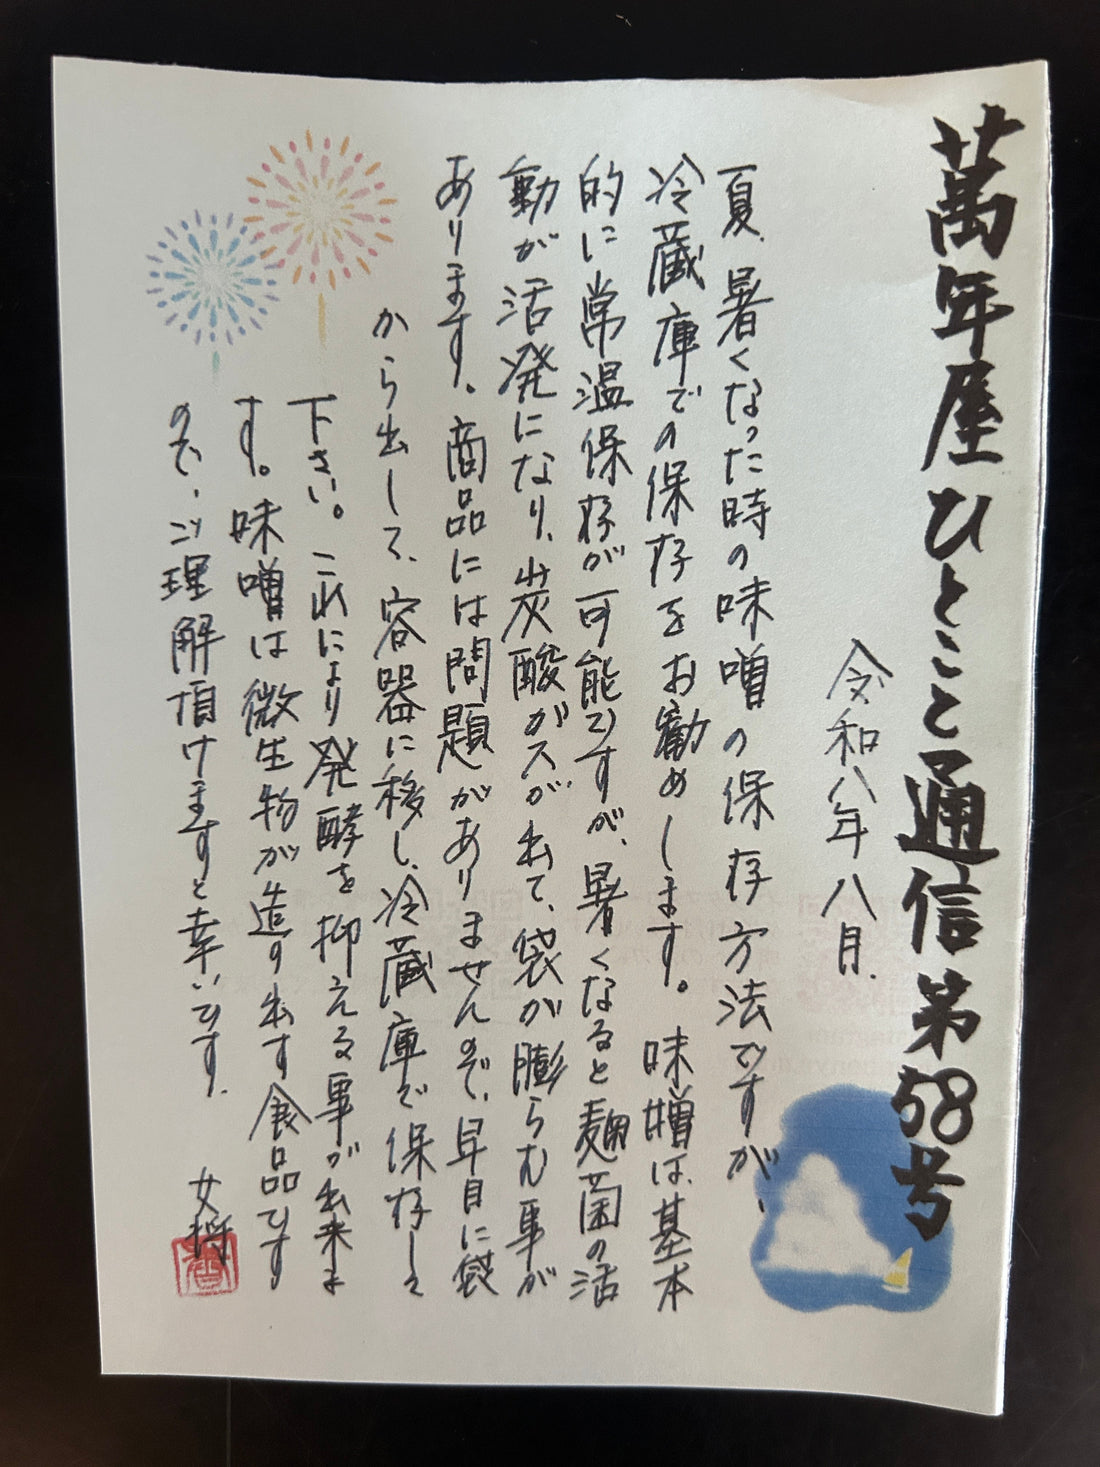 萬年屋ひとこと通信第58号
令和八年八月.
夏、暑くなった時の味噌の保存方法ですが、
冷蔵庫での保存をお勧めします。味噌は、基本
的に常温保存が可能ですが、暑くなると麹菌の活
動が活発になり、炭酸ガスが出て、袋が膨らむ事が
あります。商品には問題がありませんので、早目に袋
から出して、容器に移し、冷蔵庫で保存して
下さい。これにより発酵を抑える事が出来ま
す。味噌は微生物が造り出す食品です
ので、ご理解頂けますと幸いです.
女将